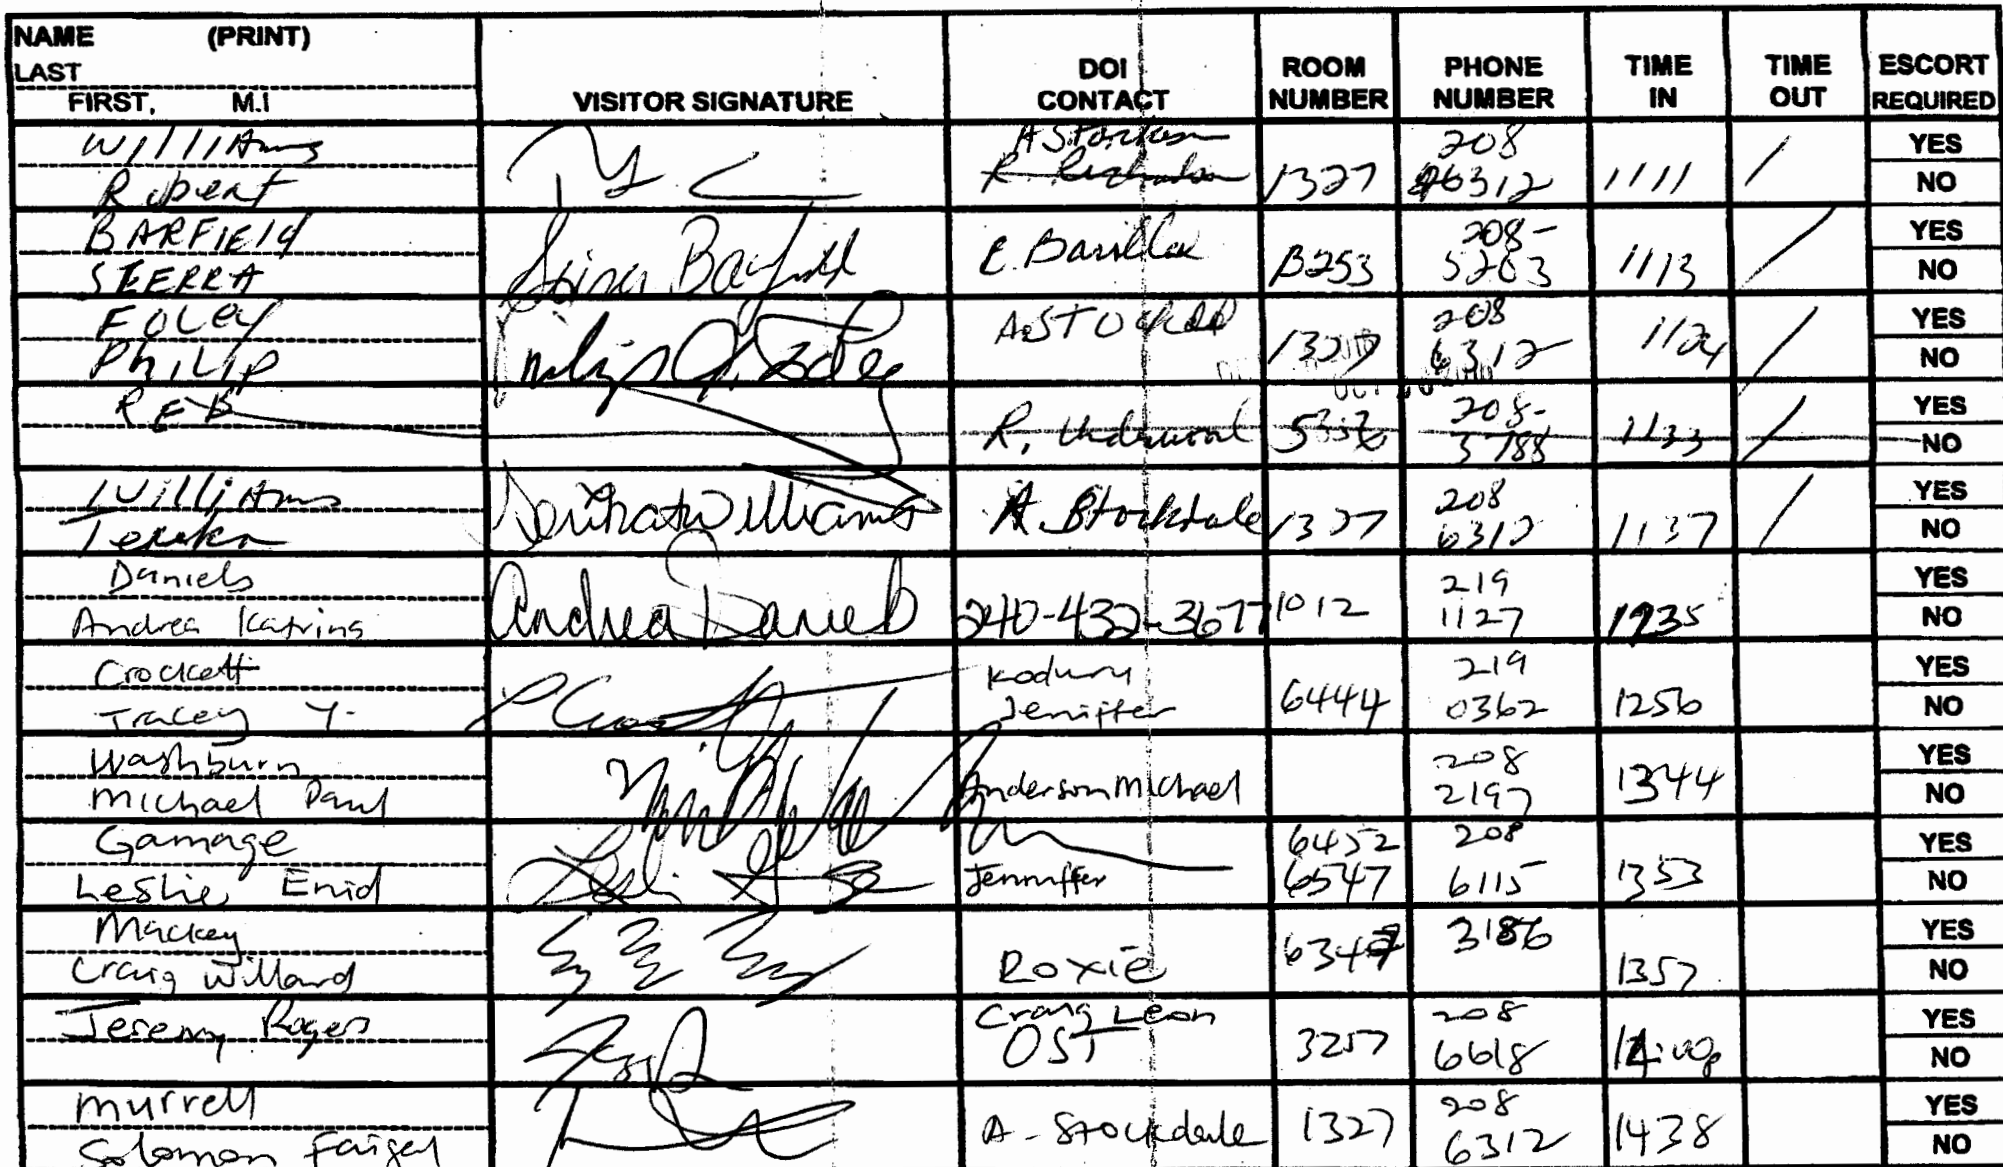 NAME (PRINT)
LAST
FIRST, M.I
VISITOR SIGNATURE
DOI CONTACT
ROOM NUMBER
PHONE NUMBER
TIME IN
TIME OUT
ESCORT REQUIRED
Williams
Robert
1327
208
6312
1111
/
YES
NO
BARFIELD
SIERRA
B253
208-
5203
1113
/
YES
NO
FOLEY
PHILIP
1327
208
6312
1124
/
YES
NO
REB
R. Underwood
208-
5788
1133
/
YES
NO
Williams
Williams
A. Stockdale
1327
208
6312
1137
/
YES
NO
Daniels
Andrea Katrina
Andrea Daniels
240-432-3677
1012
219
1127
1235
YES
NO
Crockett
Tracey Y.
Jeniffer
6444
219
0362
1256
YES
NO
Washburn
Michael Paul
Anderson Michael
208
2197
1344
YES
NO
Gamage
Leslie Enid
Jenniffer
6452
6547
208
6115
1353
YES
NO
Mackey
Craig Willard
Roxie
6347
3186
1357
YES
NO
Jeremy Rogers
Craig Leon
OST
3257
208
6618
YES
NO
Murrell
Solomon Faigal
A - Stockdale
1327
208
6312
1438
YES
NO